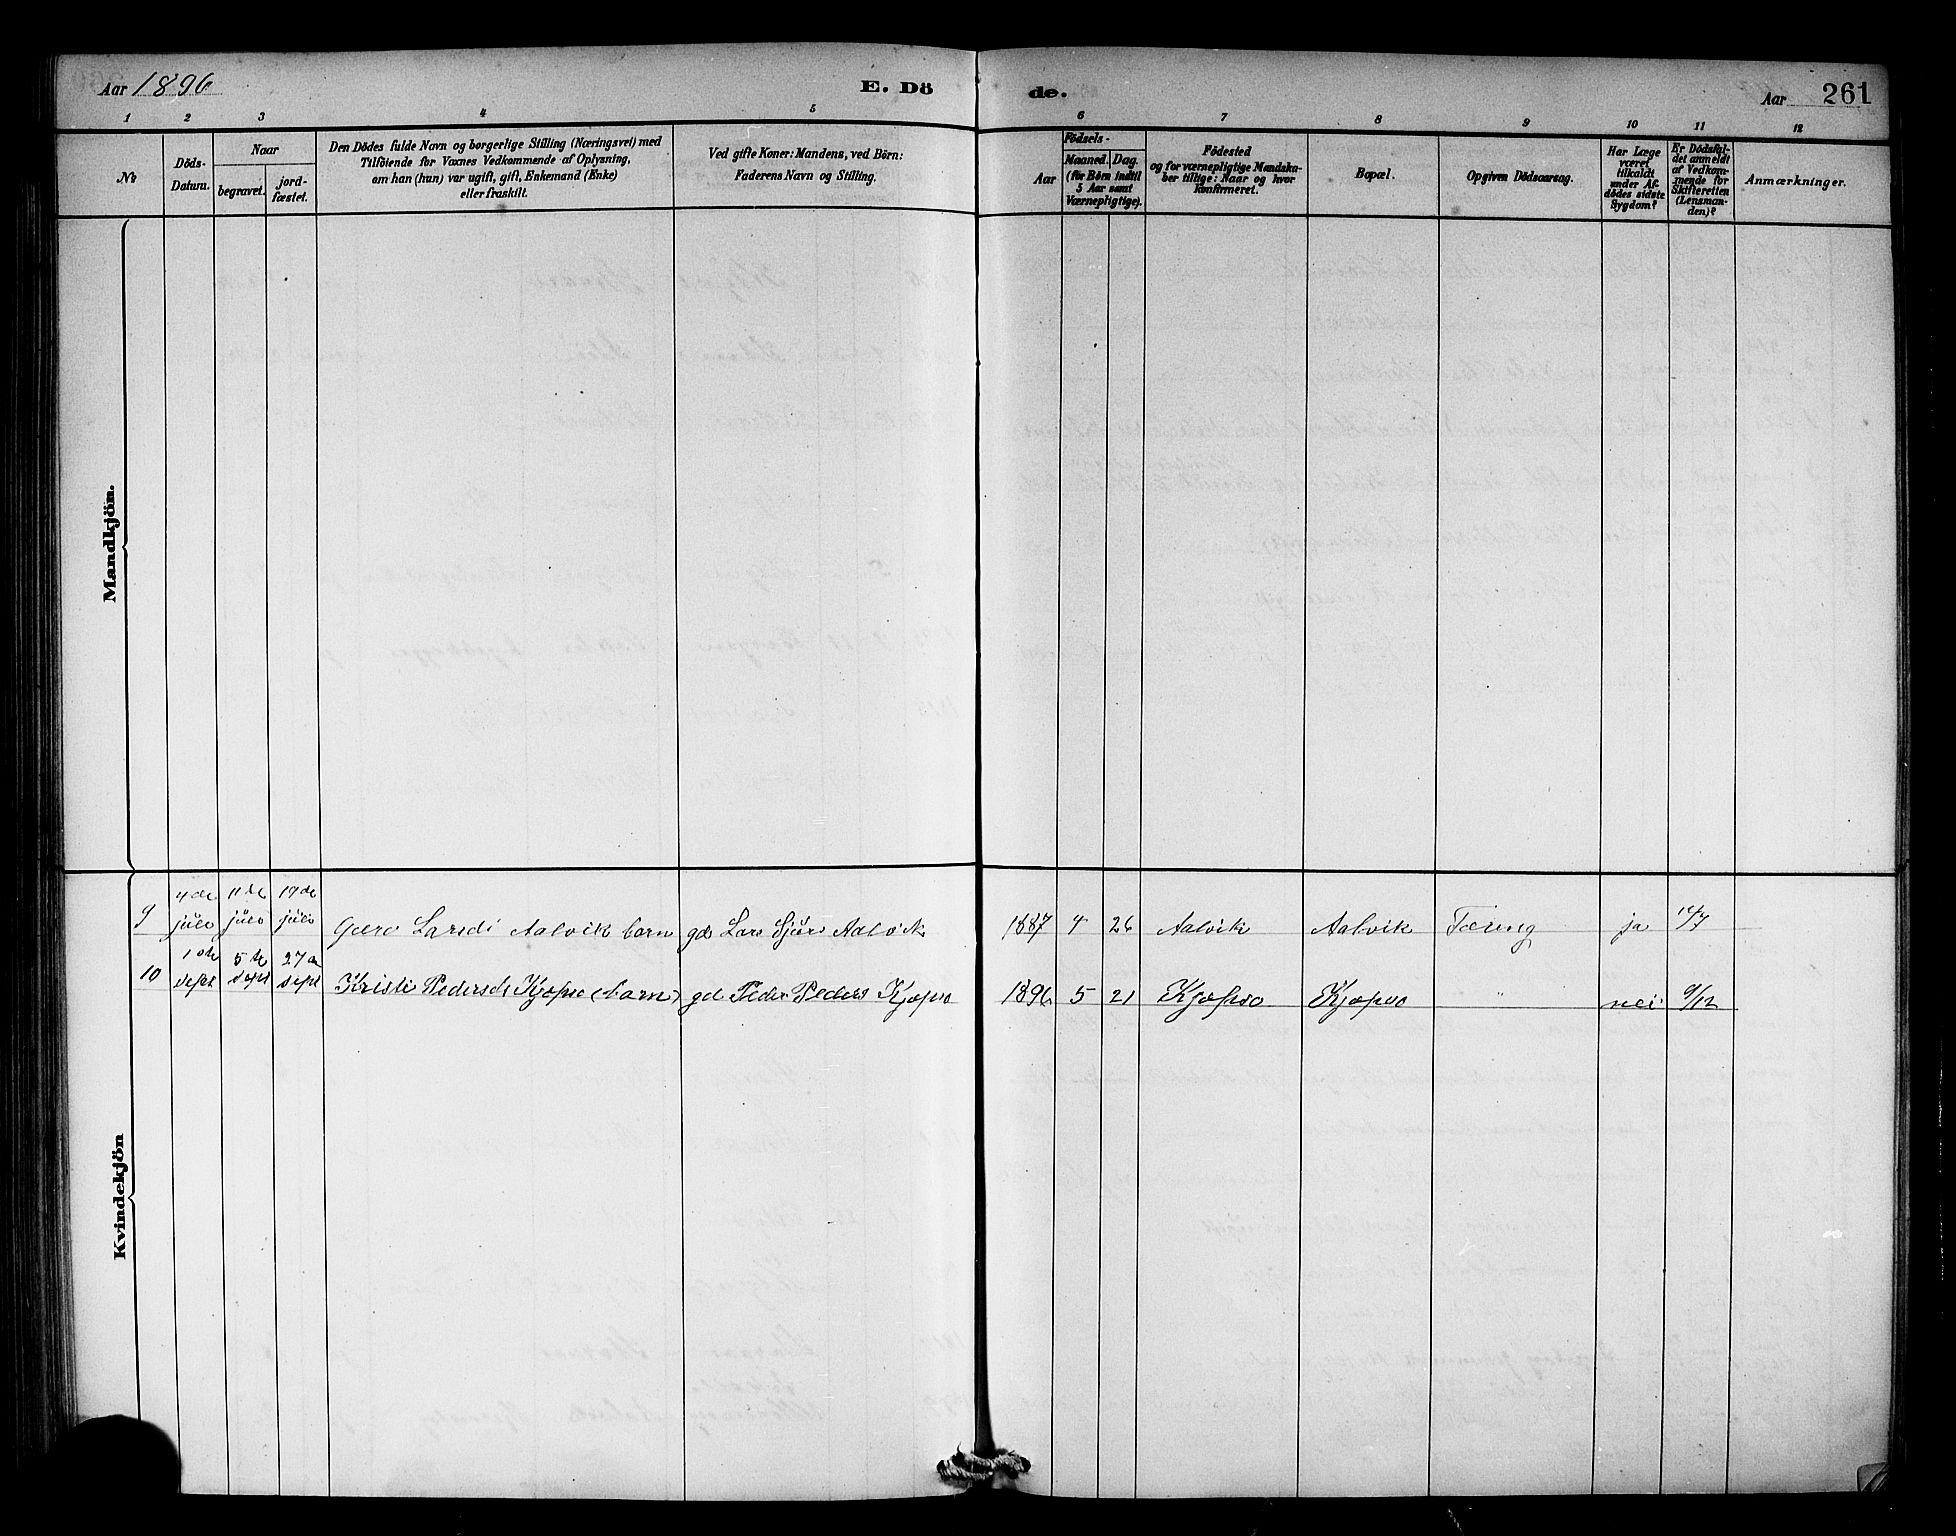 Aar 1896 E. Dö
de. Aar 261
1 2 3 4 5 6 7 8 9 10 11 12
No
Döds-
Datum.
Naar
begravet.
jord-
fæstet.
Den Dödes fulde Navn og borgerlige Stilling (Næringsvei) med
Tilföiende for Voxnes Vedkommende af Oplysning,
om han (hun) var ugift, gift, Enkemand (Enke)
eller fraskilt.
Ved gifte Koner: Mandens, ved Börn:
Faderens Navn og Stilling.
Födsels-
Aar
Maaned. Dag.
(för Börn indtil
5 Aar samt
Værnepligtige).
Födested
og for værnepligtige Mandska-
ber tillige: Naar og hvor
konfirmeret.
Bopæl.
Opgiven Dödsaarsag.
Har Læge
været
tilkaldt
under Af-
dödes sidste
Sygdom?
Er Dödsfal-
det anmeldt
af Vedkom-
mende for
Skifteretten
(Lensman-
den)?
Anmærkninger.
Mandkjön.
Kvindekjön
4de 11te 19de
9 juli juli juli Larsdt Aalvik barn gd Lars Sjurs Aalvik 1887 4 26 Aalvik Aalvik Tæring ja
1ste 5te 27de
10 sept sept sept Kristi Pedersdt Kjæpso (barn) gd Peder Peders Kjæpso 1896 5 21 Kjæpso Kjæpso " nei 9/12